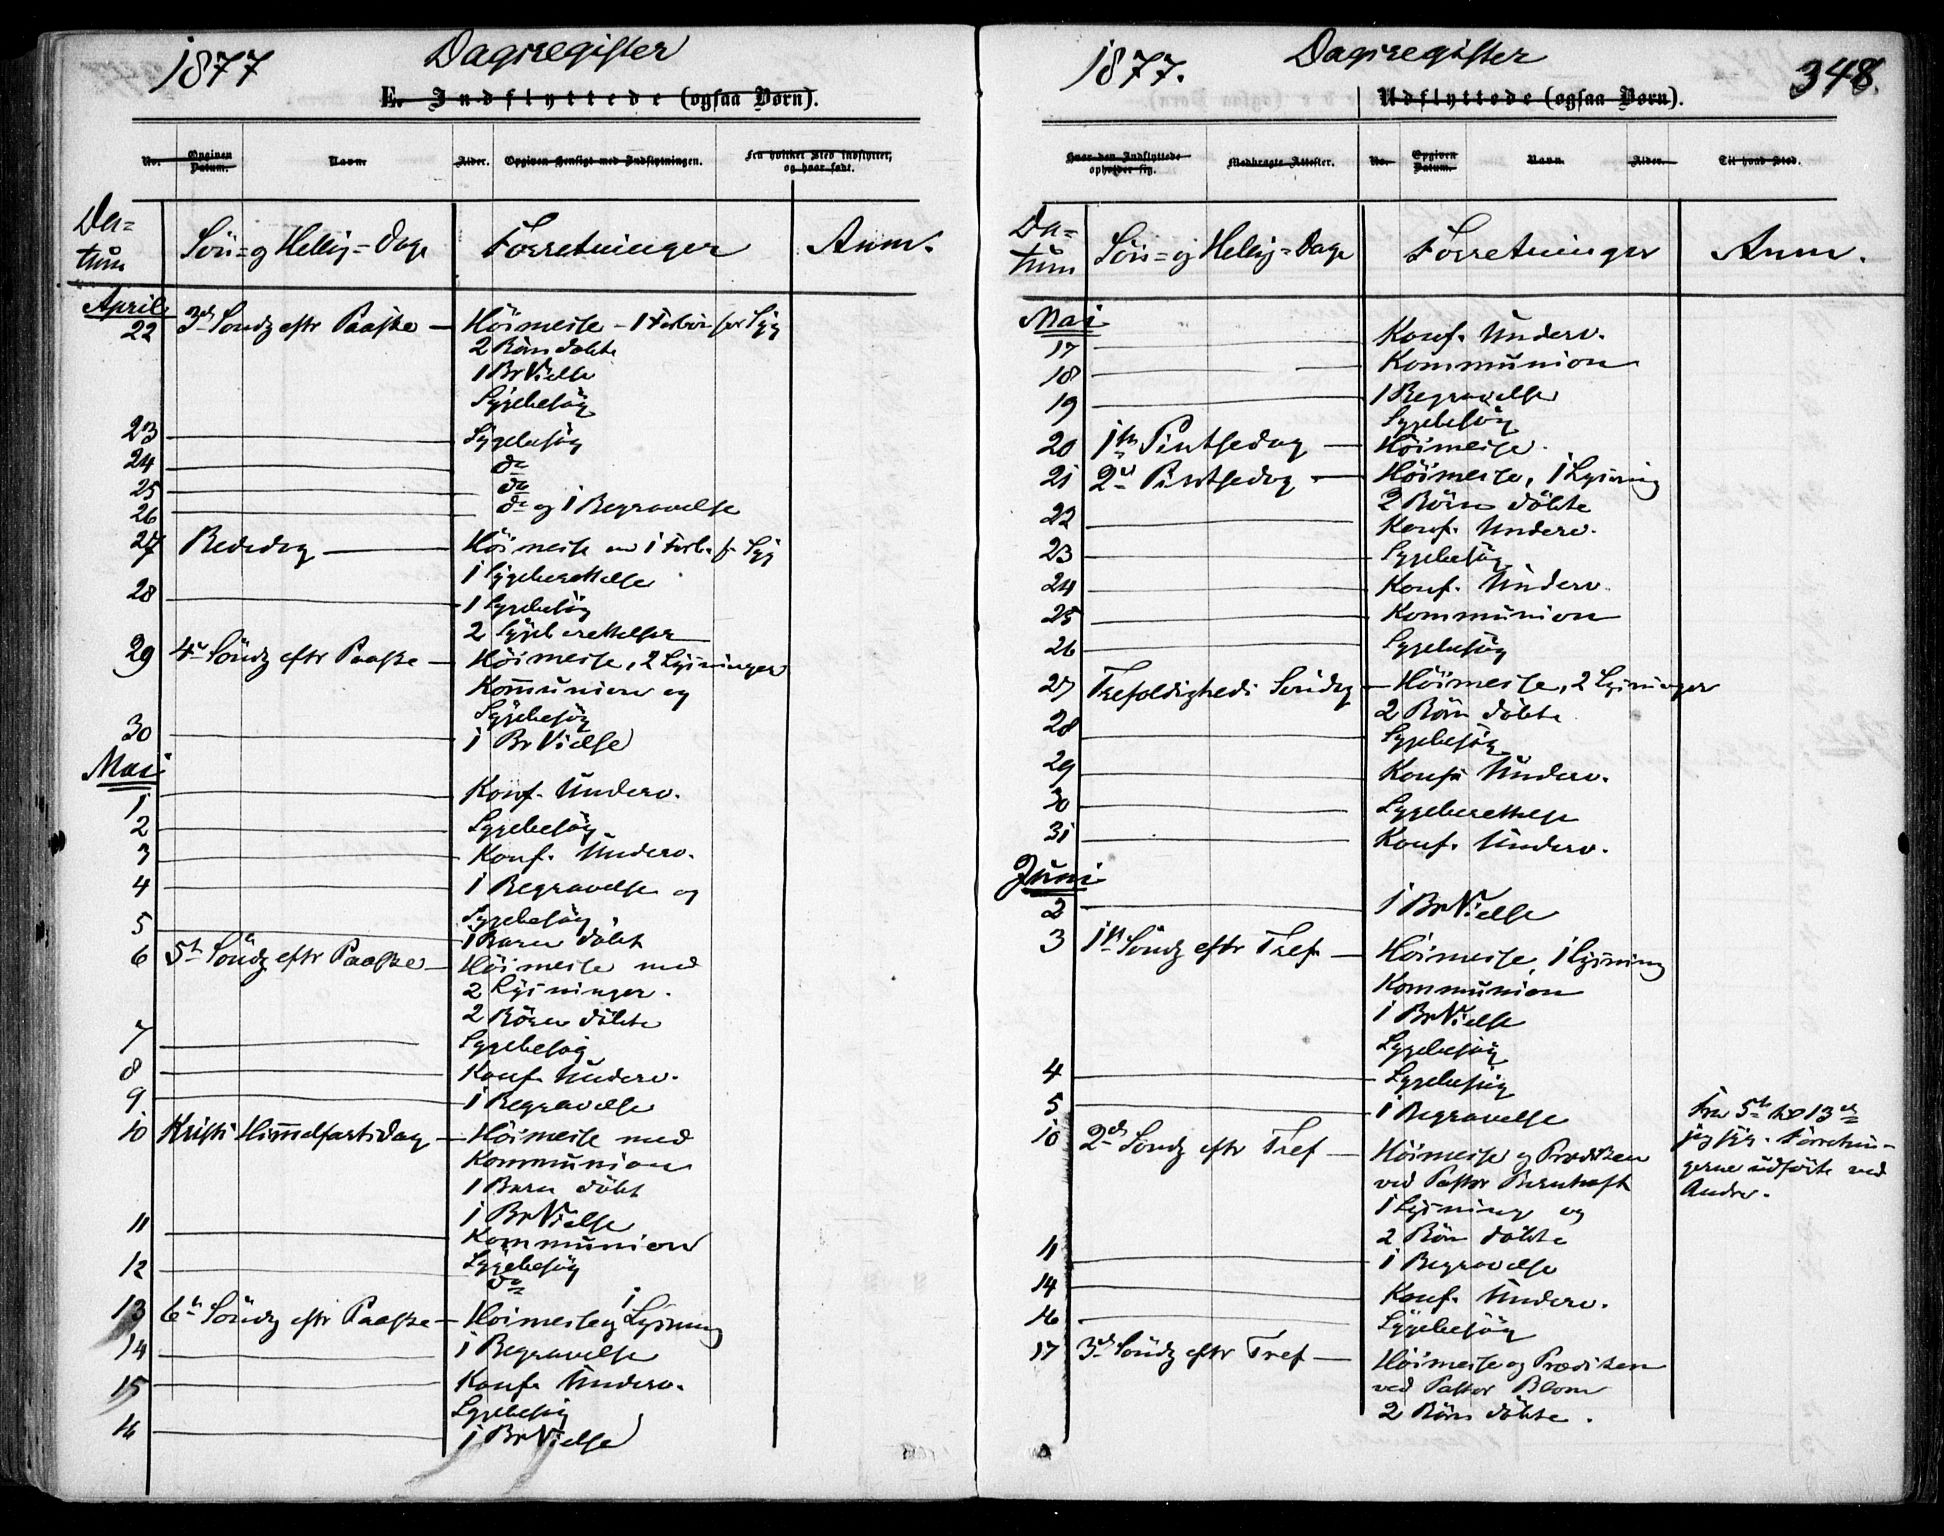 1877 Dagsregister
E. Indflyttede (ogsaa Børn).
No. Opgiven Datum. Navn. Alder. Opgiven Hensigt med Indflytningen. Fra hvilket Sted indflyttet, og hvor født.
Da=
tum Søn= og Hellig=Dage Forretninger Anm.
April
22 3die Søndg eftr Paaske — Höimesse – 1 Forbøn for Syg
2 Börn döbte
1 BrVielse
Sygebesög
23 Sygebesög
24 do
25 do
26 do og 1 Begravelse
27 Bededag — Höimesse m 1 Forb. f. Syg
1 Sygeberettelse
28 1 Sygebesög
2 Sygeberettelser
29 4de Söndg eftr Paaske — Höimesse, 2 Lysninger
Kommunion og
Sygebesög
30 1 BrVielse
Mai
1 Konf. Underv.
2 Sygebesög
3 Konf. Underv.
4 1 Begravelse og
Sygebesög
5 1 Barn döbt
6 5te Söndg eftr Paaske — Höimesse med
2 Lysninger.
2 Börn döbte
7 Sygebesög
8 Konf. Underv.
9 1 Begravelse
10 Kristi Himmelfartsdag — Höimesse med
Kommunion
1 Barn döbt
1 BrVielse
11 Kommunion
12 Sygebesög
do
13 6te Söndg eftr Paaske — Höimesse og 1 Lysning
14 1 Begravelse
15 Konf. Underv.
Sygebesög
16 1 BrVielse
1877. Dagsregister 348.
Udflyttede (ogsaa Børn).
Hvor den Indflyttede opholder sig. Medbragte Attester. No. Opgiven Datum. Navn. Alder. Til hvad Sted.
Da=
tum Søn= og Hellig=Dage Forretninger Anm.
Mai
17 Konf. Underv.
18 Kommunion
19 1 Begravelse
Sygebesög
20 1ste Pintsedag — Höimesse.
21 2den Pintsedag — Höimesse, 1 Lysning
2 Börn döbte
22 Konf. Underv.
23 Sygebesög
24 Konf. Underv.
25 Kommunion
26 Sygebesög
27 Trefoldigheds Søndag — Höimesse, 2 Lysninger
2 Börn döbte
28 Sygebesög
29 Konf. Underv.
30 Sygeberettelse
31 Konf. Underv.
Juni
2 1 BrVielse
3 1ste Söndg eftr Tref. — Höimesse, 1 Lysning
Kommunion
1 BrVielse
Sygebesög
4 Sygebesög
5 1 Begravelse Fra 5te til 13de
jeg syg. Forretnin-
gerne udførte ved
Andre.
10 2den Söndg eftr Tref — Höimesse og Prædiken
ved Pastor
1 Lysning og
2 Börn döbte
11 1 Begravelse
14 Konf. Underv.
16 Sygebesög
17 3die Söndg eftr Tref — Höimesse og Prædiken
ved Pastor Blom
2 Börn döbte.